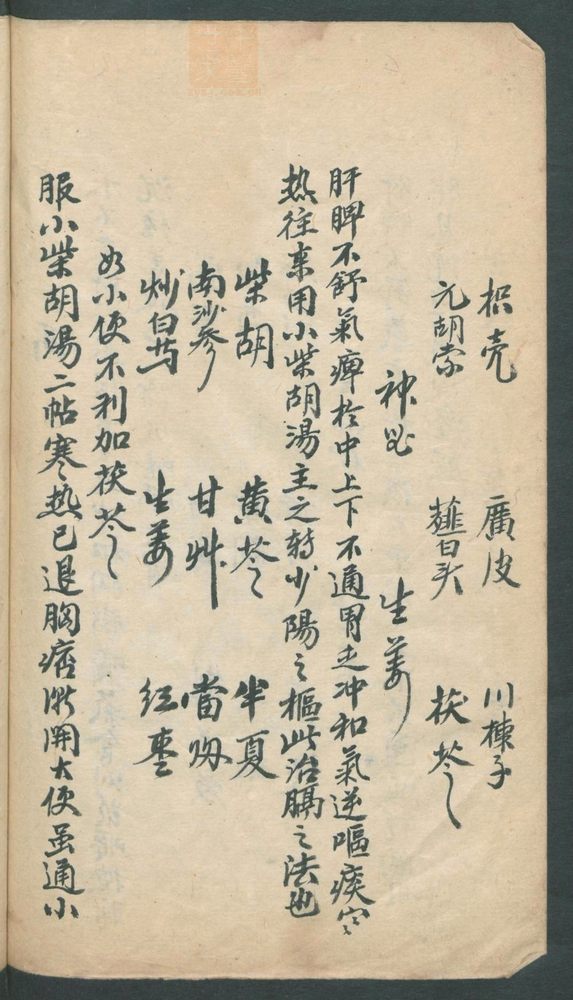 枳壳　廣皮　川楝子
元胡索　薤白头　茯苓
神曲　生姜
肝脾不舒氣痺於中上下不通胃失冲和氣逆嘔痰寒
热往来用小柴胡湯主之转少陽之樞此治膈之法也
柴胡　黄芩　半夏
南沙參　甘艸　當归
炒白芍　生姜　红枣
如小便不利加茯苓
服小柴胡湯二帖寒热已退胸痞渐開大便虽通小